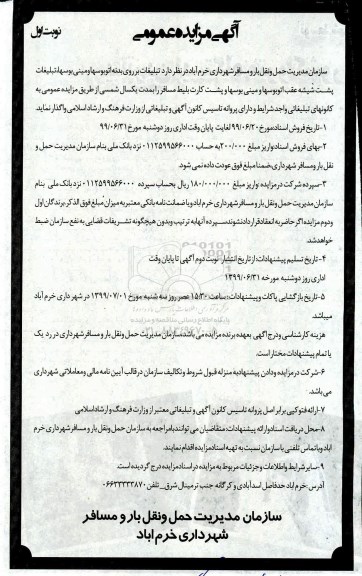 آگهی مزایده عمومی
نوبت اول
سازمان مدیریت حمل ونقل بار و مسافر شهرداری خرم آباد در نظر دارد تبلیغات بر روی بدنه اتوبوسها و مینی بوسها، تبلیغات
پشت شیشه عقب اتوبوسها و مینی بوسها و پشت کارت بلیط مسافر را بمدت یکسال شمسی از طریق مزایده عمومی به
کانونهای تبلیغاتی واجد شرایط و دارای پروانه تاسیس کانون آگهی و تبلیغاتی از وزارت فرهنگ و ارشاد اسلامی واگذار نماید.
۱-تاریخ فروش اسناد مورخ ۹۹/۰۶/۲۰ لغایت پایان وقت اداری روز دوشنبه مورخ ۹۹/۰۶/۳۱
۲-بهای فروش اسناد واریز مبلغ ۲۰۰/۰۰۰ به حساب ۰۱۱۲۵۹۹۵۶۶۰۰۰ نزد بانک ملی بنام سازمان مدیریت حمل و
نقل بار و مسافر شهرداری، ضمنا مبلغ فوق عودت داده نمی شود.
۳-سپرده شرکت در مزایده واریز مبلغ ۱۸۰/۰۰۰/۰۰۰ ریال بحساب سپرده ۰۱۱۲۵۹۹۵۶۶۰۰۰ نزد بانک ملی بنام
سازمان مدیریت حمل ونقل بار و مسافر شهرداری خرم آباد و یا ضمانت نامه بانکی معتبر به میزان مبلغ فوق الذکر برندگان اول
ودوم مزایده اگر حاضر به انعقاد قرارداد نشوند، سپرده آنها به ترتیب و بدون هیچگونه تشریفات قضایی به نفع سازمان ضبط
خواهد شد.
۴-تاریخ تسلیم پیشنهادات: از تاریخ انتشار نوبت دوم آگهی تا پایان وقت
اداری روز دوشنبه مورخه ۱۳۹۹/۰۶/۳۱
۵-تاریخ بازگشایی پاکات و پیشنهادات: ساعت ۱۵:۳۰ عصر روز سه شنبه مورخ ۱۳۹۹/۰۷/۰۱ در شهرداری خرم آباد
میباشد
هزینه کارشناسی و درج آگهی بعهده برنده مزایده می باشد، سازمان مدیریت حمل ونقل بار و مسافر شهرداری در رد یک
یا تمام پیشنهادات مختار است.
۶-شرکت در مزایده و دادن پیشنهاد به منزله قبول شروط و تکالیف سازمان در قالب آیین نامه مالی و معاملاتی شهرداری
می باشد.
۷-ارائه فتوکپی برابر اصل پروانه تاسیس کانون آگهی و تبلیغاتی معتبر از وزارت فرهنگ و ارشاد اسلامی
۸-محل دریافت اسناد و ارائه پیشنهادات: متقاضیان می توانند با مراجعه به سازمان حمل ونقل بار و مسافر شهرداری خرم
اباد و یا تماس تلفنی با سازمان نسبت به تهیه اسناد مزایده اقدام نمایند.
۹-سایر شرایط و اطلاعات و جزئیات مربوط به مزایده در اسناد مزایده درج گردیده است.
آدرس: خرم آباد حدفاصل اسدآبادی و کرگانه جنب ترمینال شرق_تلفن ۰۶۶۳۳۳۳۳۸۷۰
سازمان مدیریت حمل ونقل بار و مسافر
شهرداری خرم اباد